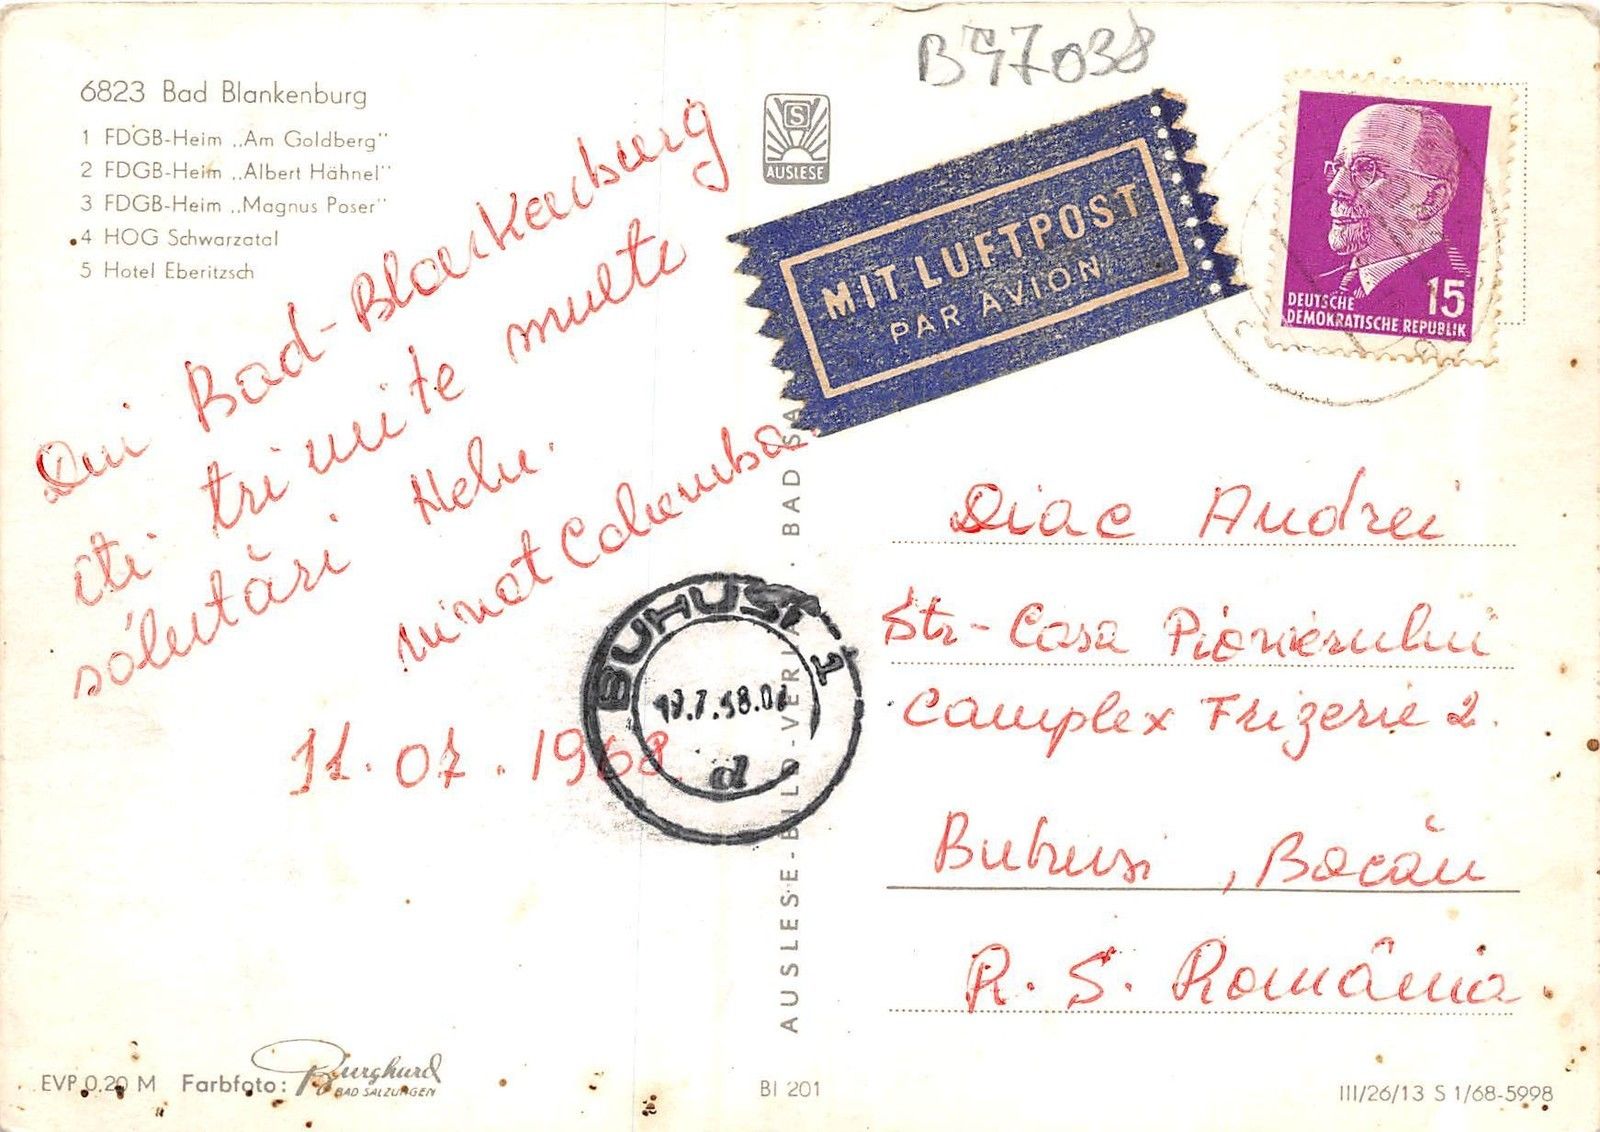 B97038
6823 Bad Blankenburg
1 FDGB-Heim „Am Goldberg"
2 FDGB-Heim „Albert Hähnel"
3 FDGB-Heim „Magnus Poser"
4 HOG Schwarzatal
5 Hotel Eberitzsch
S
AUSLESE
MIT LUFTPOST
PAR AVION
15
DEUTSCHE
DEMOKRATISCHE REPUBLIK
Din Bad-Blankenburg
iti trimite multe
sălutări Helu.
Columba.
11.07.1968
BUHUSI 1
d
AUSLESE-BILD-VERL · BAD SA
Diac Andrei
Str-Casa Pionierului
Complex Frizerie 2.
Buhusi, Bacău
R. S. România
EVP 0.20 M Farbfoto: Burghard
BAD SALZUNGEN
BI 201
III/26/13 S 1/68-5998